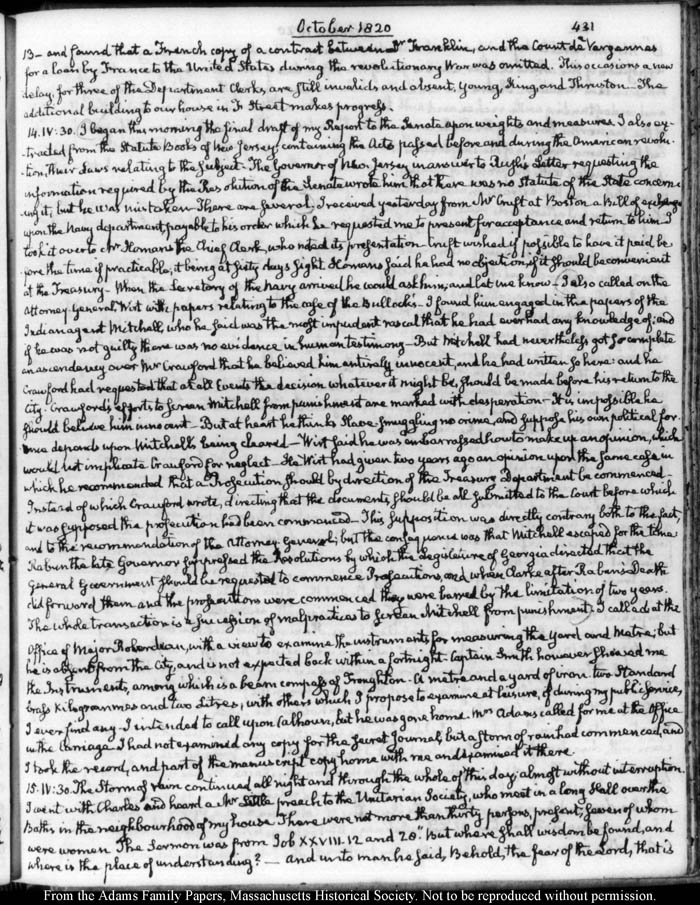 October 1820
431
13— and found that a French copy of a contract between Dr Franklin, and the Count de Vergennes
for a loan by France to the United States during the revolutionary War was omitted. This occasions a new
delay, for three of the Department Clerks, are still invalids and absent, Young, King, and Thruston— The
additional building to our house in F. Street makes progress.
14. IV:30. I began this morning the final draft of my Report to the Senate upon weights and measures. I also ex-
-tracted from the Statute Books of New Jersey, containing the Acts passed before and during the American revolu-
-tion, their Laws relating to the subject— The Governor of New Jersey in answer to Letter requesting the
information required by the Resolution of the Senate wrote him that there was no Statute of the State concern-
ing it, but he was mistaken— There are several, I received yesterday from Mr Cruft at Boston a Bill of exchange
upon the Navy department, payable to his order which he requested me to present for acceptance and return to him. I
took it over to Mr Homans the Chief Clerk, who noted its presentation— Cruft wished if possible to have it paid be-
fore the time if practicable, it being at sixty days sight. Homans said he had no objection, if it should be convenient
at the Treasury— When the Secretary of the Navy arrived he would ask him, and let me know— I also called on the
Attorney General, Wirt with papers relating to the case of the Bullocks— I found him engaged in the papers of the
Indian agent Mitchell, who he said was the most impudent rascal that he had ever had any knowledge of; and
if he was not guilty there was no evidence in human testimony— But Mitchell had nevertheless got so complete
an ascendency over Mr Crawford that he believed him entirely innocent, and he had written so here: and he
Crawford had requested that at all Events the decision whatever it might be, should be made before his return to the
City. Crawford's efforts to screen Mitchell from punishment are marked with desperation— It is impossible he
should believe him innocent— But at heart he thinks Slave smuggling no crime, and suppose his own political for-
tune depends upon Mitchell's being cleared— Wirt said he was embarrassed how to make up an opinion, which
would not implicate Crawford for neglect— He Wirt had given two years ago an opinion upon the same case in
which he recommended that a Prosecution should by direction of the Treasury Department be commenced—
Instead of which Crawford wrote, directing that the documents, should be all submitted to the Court before which
it was supposed the prosecution had been commenced— This supposition was directly contrary both to the fact,
and to the recommendation of the Attorney General; but the consequence was that Mitchell escaped for the time
Rabun the late Governor suppressed the Resolutions by which the Legislature of Georgia directed that the
General Government should be requested to commence Prosecutions, and when Clarke after Rabun's Death
did forward them and the prosecutions were commenced they were barred by the limitation of two years.
The whole transaction is a succession of malpractices to screen Mitchell from punishment. I called at the
Office of Major Roberdeau, with a view to examine the instruments for measuring the Yard and Metre; but
he is absent from the City, and is not expected back within a fortnight. Captain Smith however shewed me
the Instruments, among which is a beam compass of Troughton— A metre and a yard of iron— two Standard
brass Kilogrammes and two Litres, with others which I propose to examine at leisure, if during my public service,
I ever find any— I intended to call upon Calhoun, but he was gone home. Mrs Adams called for me at the Office
in the Carriage. I had not examined any copy for the secret Journal, but a storm of rain had commenced, and
I took the record, and part of the manuscript copy home with me and examined it there
15. IV:30. The Storm of rain continued all night and through the whole of this day; almost without interruption.
I went with Charles and heard a Mr Little preach to the Unitarian Society, who meet in a long Hall over the
Baths in the neighbourhood of my house. There were not more than thirty persons, present, seven of whom
were women. The Sermon was from Job XXVIII. 12 and 28. But where shall wisdom be found, and
where is the place of understanding?— And unto man he said, Behold, the fear of the Lord, that is
From the Adams Family Papers, Massachusetts Historical Society. Not to be reproduced without permission.